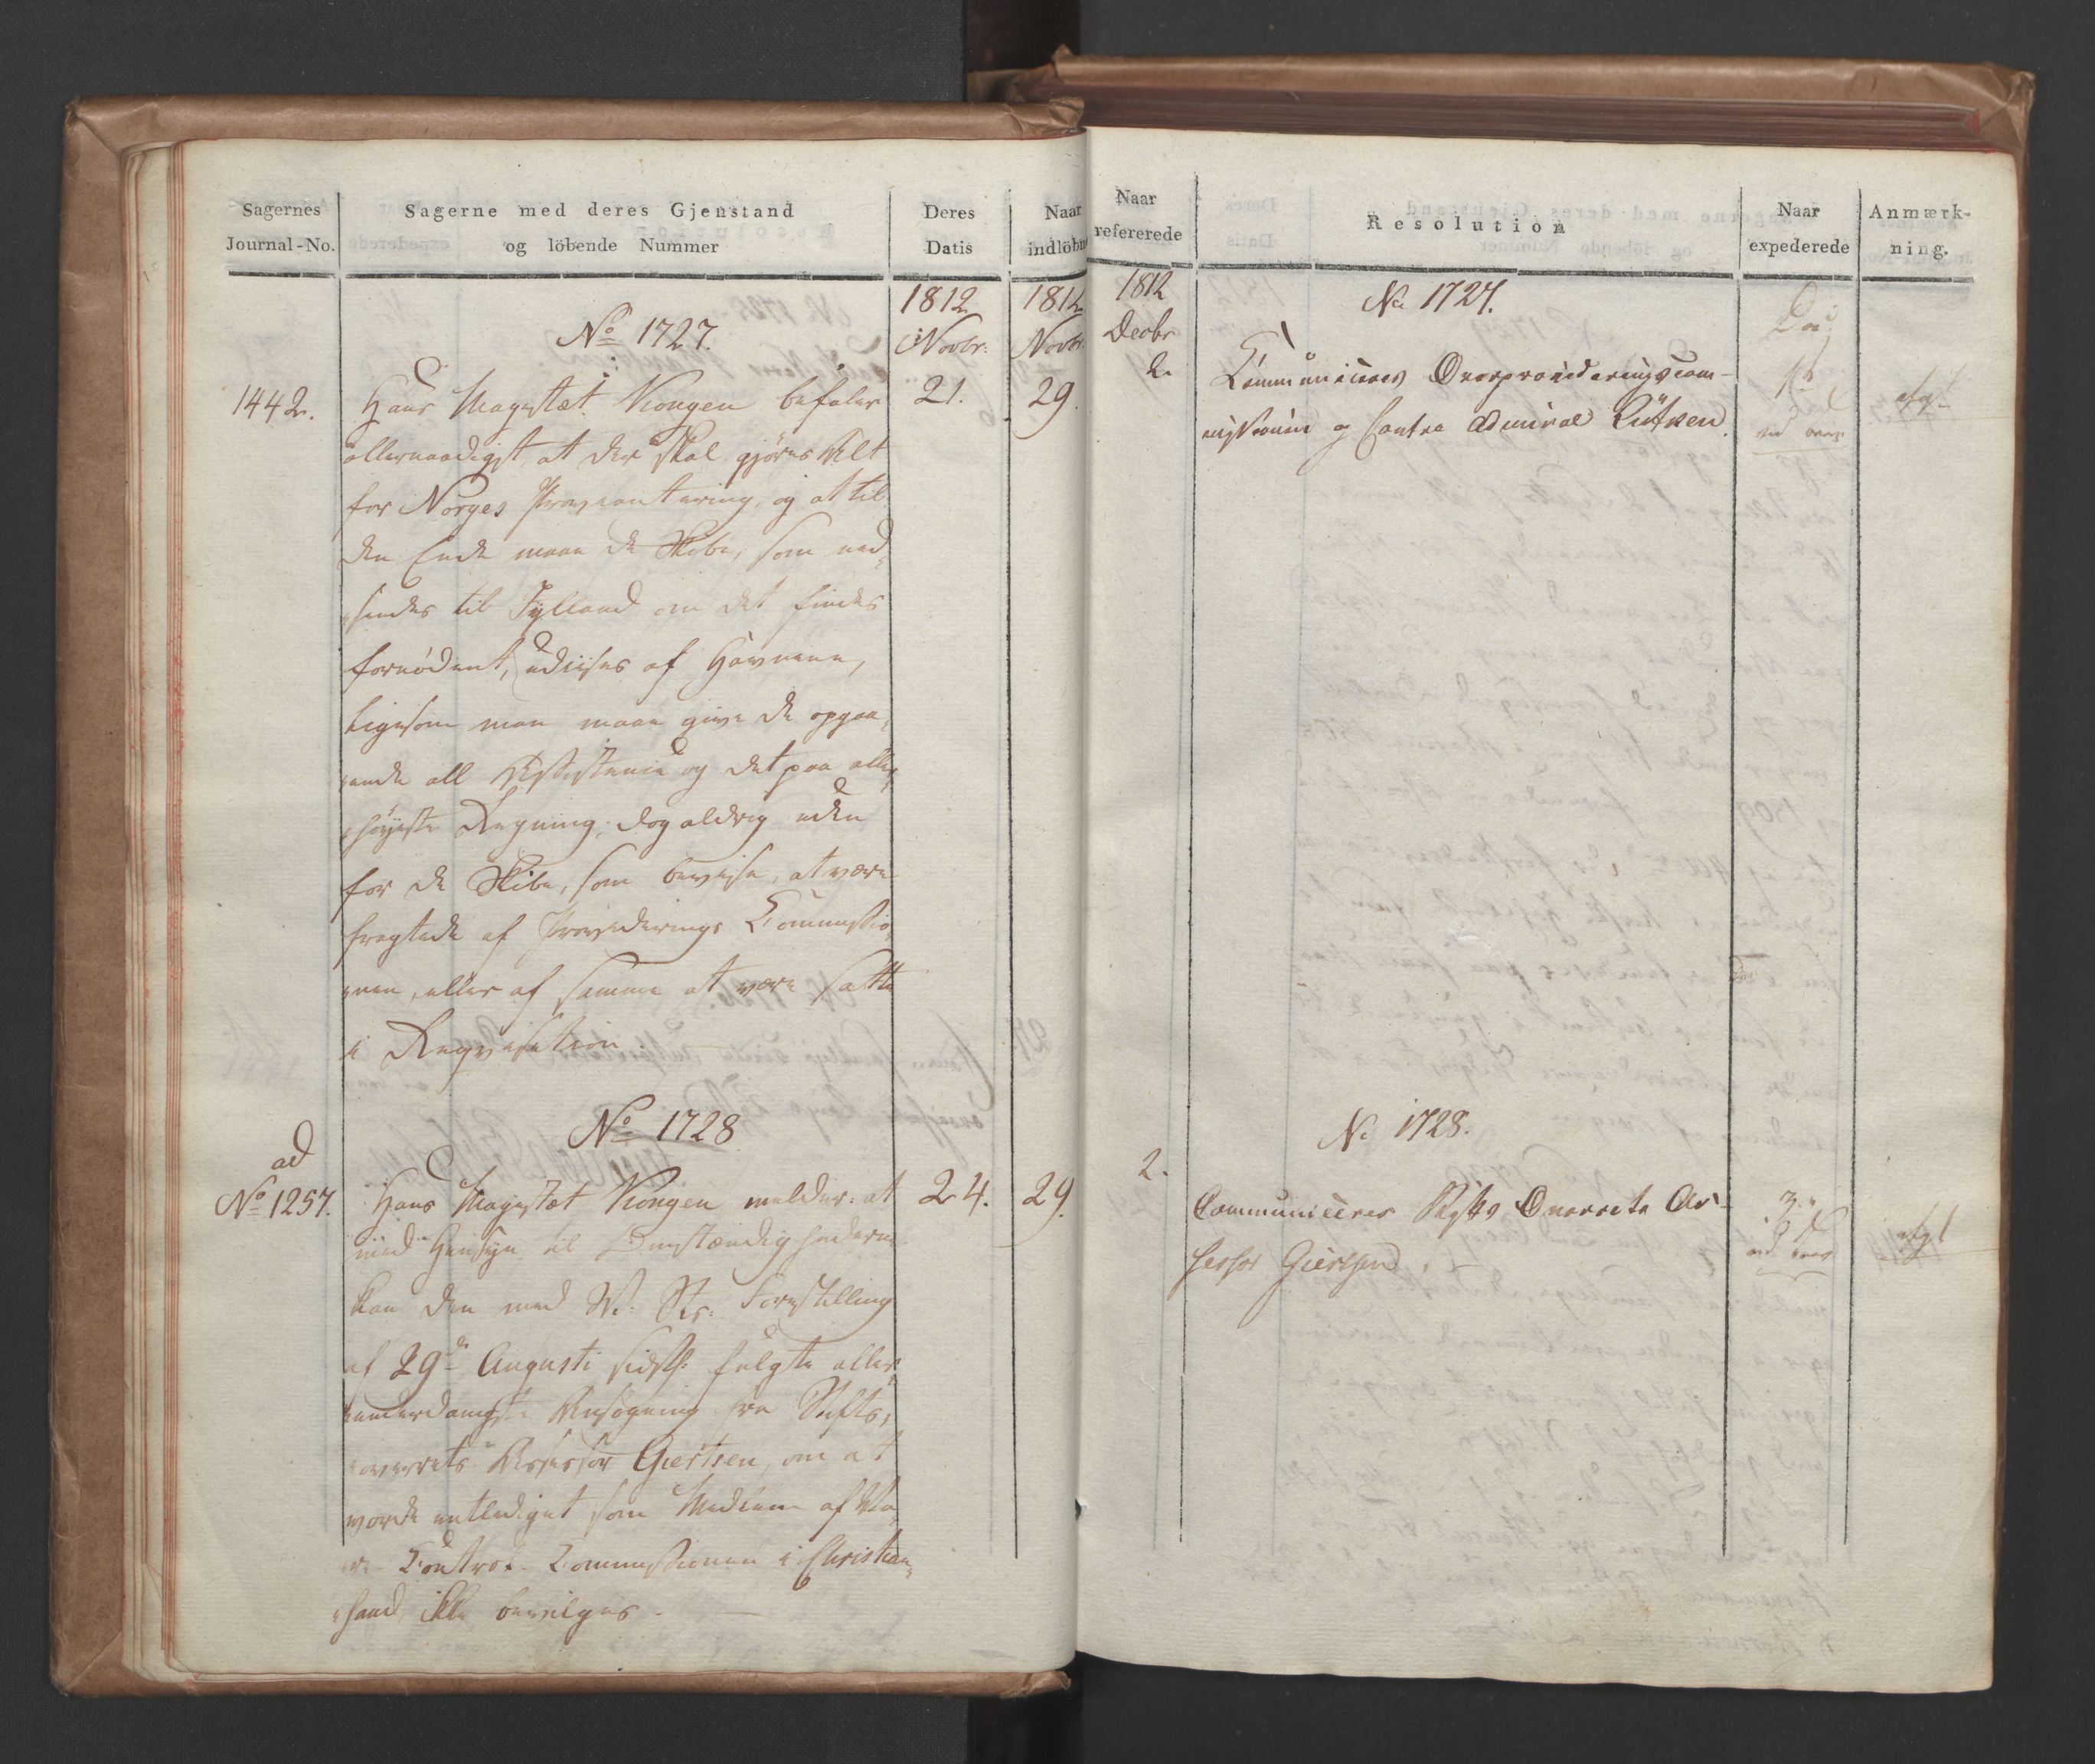 Sagernes
Journal-No.
Sagerne med deres Gjenstand
og löbende Nummer
Deres
Datis
Naar
indlöbne
1812
Novbr:
1812
Novbr:
No 1727.
1442.
21.
29.
Hans Majestæt Kongen befaler
allernaadigst, at der skal gjöres Alt
for Norges Proviantering, og at til
den Ende maae de Skibe, som ned-
sendes til Jylland om det findes
fornödent, udiises af Havnene,
ligesom man maae give de opgaa-
ende all Assistence og det paa aller-
höyeste Regning, dog aldrig uden
for de Skibe, som bevise, at være
fragtede af Provideerings Commissio-
nen, eller af samme at være satte
i Reqvisition
No 1728
ad
No 1257.
24.
29.
Hans Majestæt Kongen melder: at
med Hensyn til Omstændighederne
kan den med Forestilling
af 29de Augusti sidstl: fulgte aller-
underdanigste Ansögning fra Stifts-
overrets Assessor Giertsen, om at
vorde entlediget som Medlem af
Control-Commissionen i Christian-
sand ikke bevilges.
Naar
refererede
Resolution
Naar
expederede
Anmærk-
ning.
1812
Decbr
2.
No 1727.
Communiceres Overprovideringscom-
missionen og Contra Admiral Lütken.
No 1728.
2.
Communiceres Stifts Overrets As-
sessor Giertsen.
3.